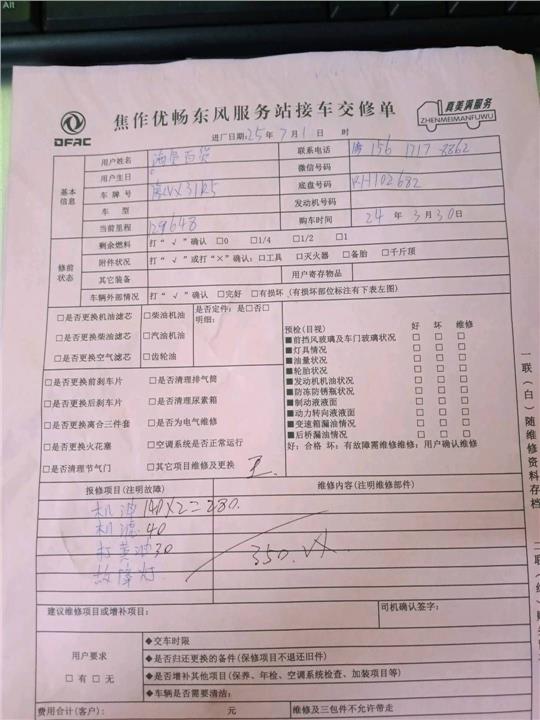 Alt
DFAC
焦作优畅东风服务站接车交修单
真美满服务
ZHENMEIMANFUWU
进厂日期:25年7月1日 时
基本信息
用户姓名
联系电话 156 1717 8862
用户生日
微信号码
车牌号
底盘号码 RH102682
车型
发动机号码
当前里程 129648
购车时间 24年3月30日
修前状态
剩余燃料 打“√”确认 □0 □1/4 □1/2 □1
附件状况 打“√”或打“×”确认:□工具 □灭火器 □备胎 □千斤顶
其它装备
用户寄存物品
车辆外部情况 打“√”确认 □完好 □有损坏 (有损坏部位标注有下表左图)
□是否更换机油滤芯 □柴油机油 是否定件:是□否□
明细:
□是否更换柴油滤芯 □汽油机油
□是否更换空气滤芯 □齿轮油
预检(目视) 好 坏 维修
■前挡风玻璃及车门玻璃状况 □ □ □
■灯具情况 □ □ □
■油量状况 □ □ □
■轮胎状况 □ □ □
■发动机机油状况 □ □ □
■防冻防锈瓶状况 □ □ □
■制动液液面 □ □ □
■动力转向液液面 □ □ □
■变速箱漏油情况 □ □ □
■后桥漏油情况 □ □ □
好:合格 坏:有故障需维修维修:用户确认维修
□是否更换前刹车片 □是否清理排气筒
□是否更换后刹车片 □是否清理尿素箱
□是否更换离合三件套 □是否为电气维修
□是否更换火花塞 □空调系统是否正常运行
□是否清理节气门 □其它项目维修及更换 王
报修项目(注明故障) 维修内容(注明维修部件)
机油 140×2=280.
机滤 40
打黄油 30
故障灯
350.
建议维修项目或增补项目:
司机确认签字:
用户要求
□有 □无
◆交车时限
◆是否归还更换的备件(保修项目不退还旧件)
◆是否增补其他项目(保养、年检、空调系统检查、加装项目等)
◆车辆是否需要清洁:
费用合计(客户): 元 维修及三包件不允许带走
一联(白)随维修资料存档
二联(